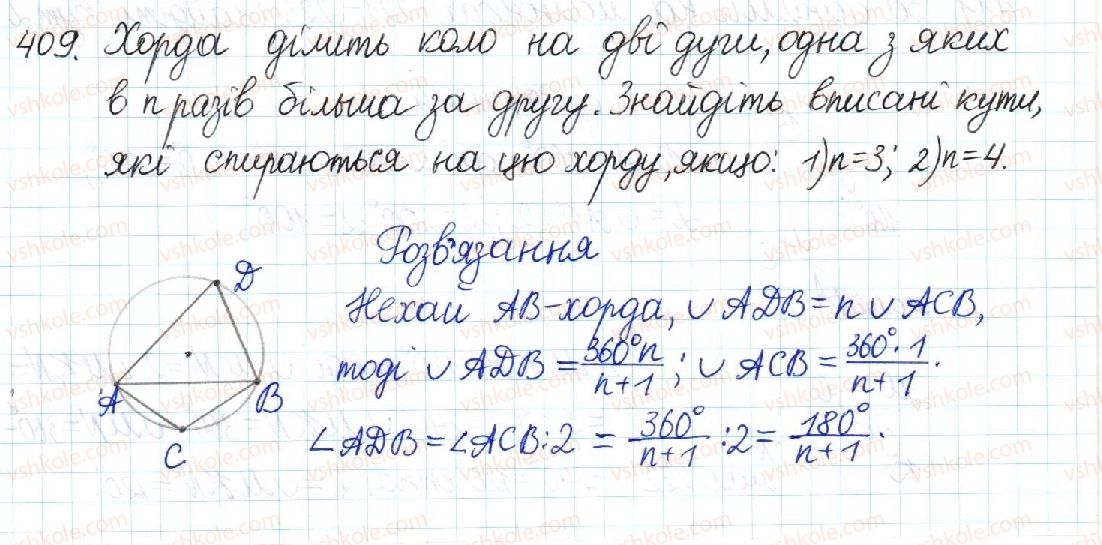 409. Хорда ділить коло на дві дуги, одна з яких
в n разів більша за другу. Знайдіть вписані кути,
які спираються на цю хорду, якщо: 1) n=3; 2) n=4.
Розв'язання
Нехай AB-хорда, ∪ ADB = n ∪ ACB,
тоді ∪ ADB = 360°n/(n+1); ∪ ACB = 360°·1/(n+1).
∠ADB = ∠ACB:2 = 360°/(n+1) :2 = 180°/(n+1).
D
A
B
C
vshkole.com